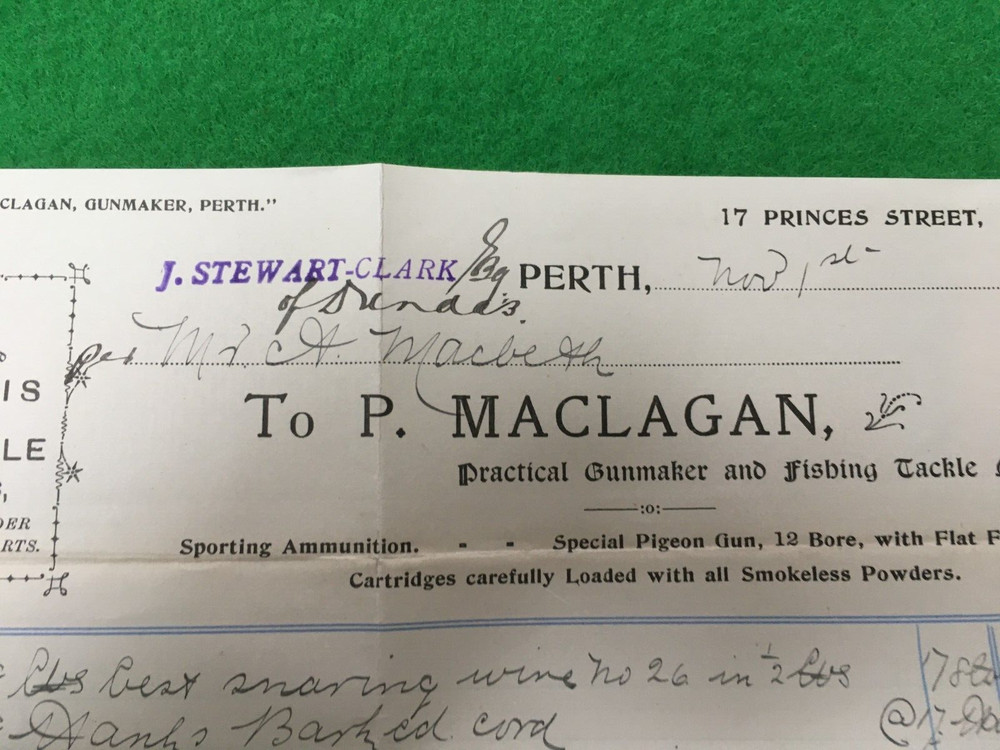 CLAGAN, GUNMAKER, PERTH."
17 PRINCES STREET,
J. STEWART-CLARK Esq
PERTH, Nov 1st
of Dundas.
per Mr. A. Macbeth
IS
LE
DER
RTS.
To P. MACLAGAN,
Practical Gunmaker and Fishing Tackle
:o:
Sporting Ammunition. - - Special Pigeon Gun, 12 Bore, with Flat F
Cartridges carefully Loaded with all Smokeless Powders.
lbs best snaring wire No 26 in ½ lbs
Hanks Barked cord @